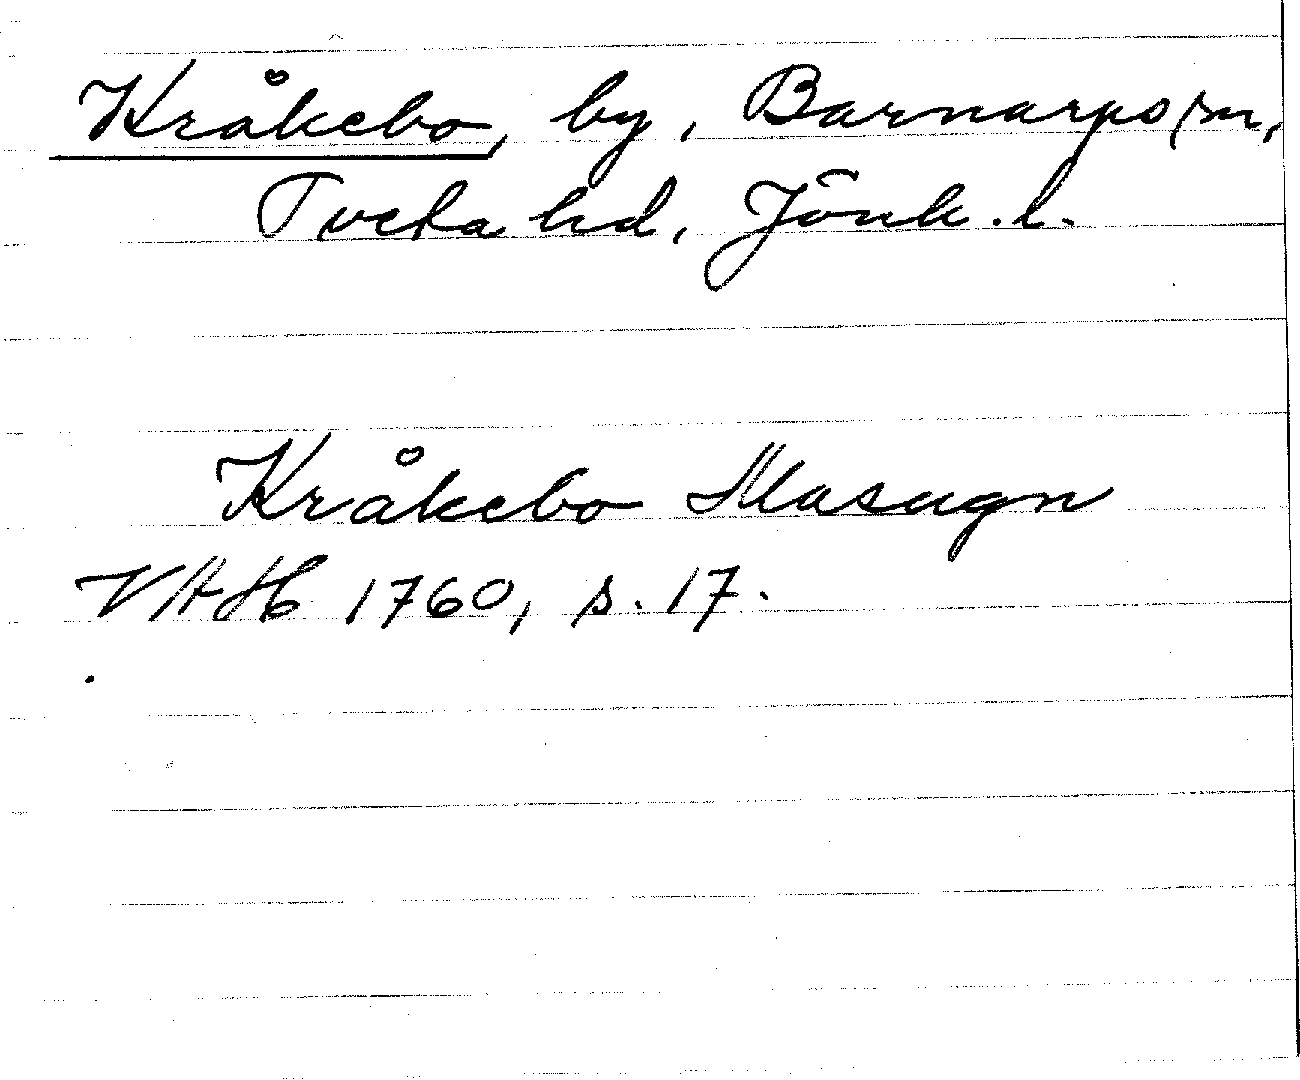 Kråkebo, by, Barnarps sn,
Tveta hd, Jönk. l.
Kråkebo Masugn
VAH 1760, s. 17.